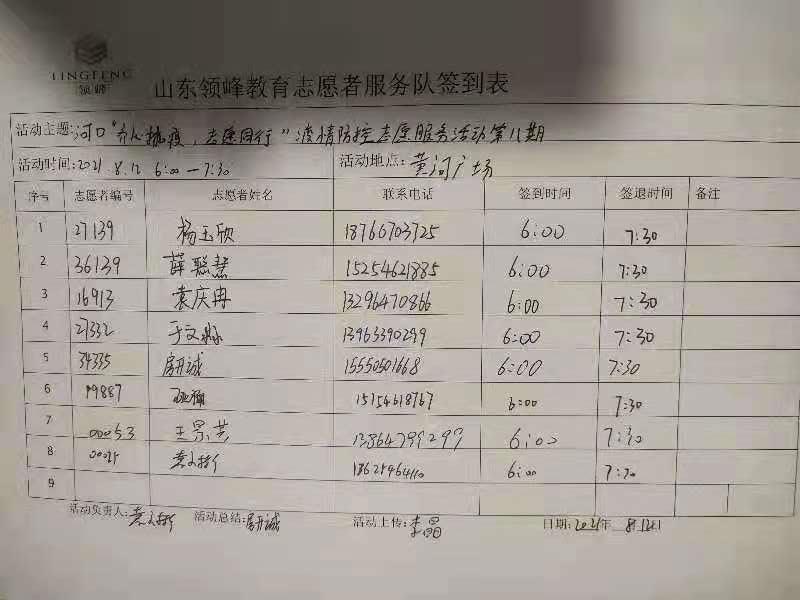 LINGFENG
领峰
山东领峰教育志愿者服务队签到表
活动主题: 河口"齐心抗疫,志愿同行"疫情防控志愿服务活动第八期
活动时间: 2021 8.12 6:00—7:30 活动地点: 黄河广场
序号 志愿者编号 志愿者姓名 联系电话 签到时间 签退时间 备注
1 27139 杨玉欣 18766703725 6:00 7:30
2 36139 薛聪慧 15254621885 6:00 7:30
3 16913 袁庆冉 13296470866 6:00 7:30
4 27332 于文 13963390299 6:00 7:30
5 34335 房诚 15550501668 6:00 7:30
6 19887 15154618767 6:00 7:30
7 00053 王景芸 13864799299 6:00 7:30
8 00025 袁文新 6:00 7:30
9
活动负责人: 袁文新 活动总结: 房诚 活动上传: 李晶 日期: 2021年 8.12日